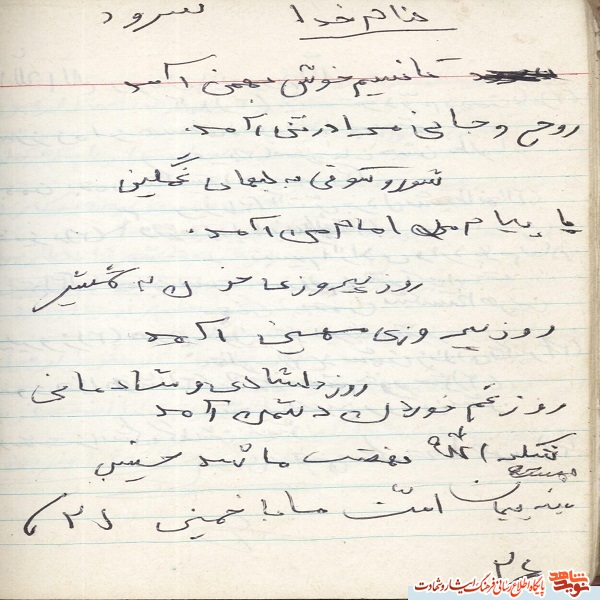 بنام خدا سرود
تا نسیم خوش بهمن آمد
روح و جانی مرا در تن آمد.
شور و شوقی به دلهای غمگین
با پیام امام من آمد.
روز پیروزی خون به شمشیر
روز پیروزی میهن آمد
روز دلشادی و شادمانی
روز غم خوردن دشمن آمد
نهضت ما شد حسینی
بسته پیمان امت ما با خمینی (۲)
۳۴
نوید شاهد
پایگاه اطلاع رسانی فرهنگ ایثار و شهادت